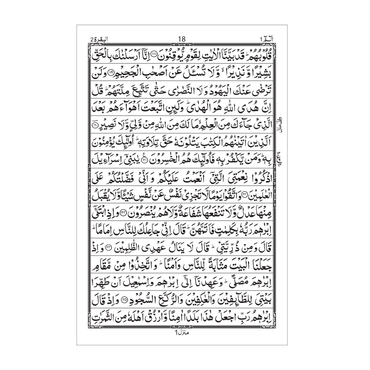 البقرة ٢ 18 الٓمّٓ ١
قُلُوْبُهُمْ ؕ قَدْ بَيَّنَّا الْاٰيٰتِ لِقَوْمٍ يُّوْقِنُوْنَ ۝ اِنَّاۤ اَرْسَلْنٰكَ بِالْحَقِّ
بَشِيْرًا وَّنَذِيْرًا ۙ وَّلَا تُسْـَٔلُ عَنْ اَصْحٰبِ الْجَحِيْمِ ۝ وَلَنْ
تَرْضٰى عَنْكَ الْيَهُوْدُ وَلَا النَّصٰرٰى حَتّٰى تَتَّبِعَ مِلَّتَهُمْ ؕ قُلْ
اِنَّ هُدَى اللّٰهِ هُوَ الْهُدٰى ؕ وَلَىِٕنِ اتَّبَعْتَ اَهْوَآءَهُمْ بَعْدَ
الَّذِيْ جَآءَكَ مِنَ الْعِلْمِ ۙ مَا لَكَ مِنَ اللّٰهِ مِنْ وَّلِيٍّ وَّلَا نَصِيْرٍ ۝
اَلَّذِيْنَ اٰتَيْنٰهُمُ الْكِتٰبَ يَتْلُوْنَهٗ حَقَّ تِلَاوَتِهٖ ؕ اُولٰٓىِٕكَ يُؤْمِنُوْنَ
بِهٖ ؕ وَمَنْ يَّكْفُرْ بِهٖ فَاُولٰٓىِٕكَ هُمُ الْخٰسِرُوْنَ ۝ يٰبَنِيْۤ اِسْرَآءِيْلَ
اذْكُرُوْا نِعْمَتِيَ الَّتِيْۤ اَنْعَمْتُ عَلَيْكُمْ وَاَنِّيْ فَضَّلْتُكُمْ عَلَى
الْعٰلَمِيْنَ ۝ وَاتَّقُوْا يَوْمًا لَّا تَجْزِيْ نَفْسٌ عَنْ نَّفْسٍ شَيْـًٔا وَّلَا يُقْبَلُ
مِنْهَا عَدْلٌ وَّلَا تَنْفَعُهَا شَفَاعَةٌ وَّلَا هُمْ يُنْصَرُوْنَ ۝ وَاِذِ ابْتَلٰۤى
اِبْرٰهٖمَ رَبُّهٗ بِكَلِمٰتٍ فَاَتَمَّهُنَّ ؕ قَالَ اِنِّيْ جَاعِلُكَ لِلنَّاسِ اِمَامًا ؕ
قَالَ وَمِنْ ذُرِّيَّتِيْ ؕ قَالَ لَا يَنَالُ عَهْدِي الظّٰلِمِيْنَ ۝ وَاِذْ
جَعَلْنَا الْبَيْتَ مَثَابَةً لِّلنَّاسِ وَاَمْنًا ؕ وَاتَّخِذُوْا مِنْ مَّقَامِ
اِبْرٰهٖمَ مُصَلًّى ؕ وَعَهِدْنَاۤ اِلٰۤى اِبْرٰهٖمَ وَاِسْمٰعِيْلَ اَنْ طَهِّرَا
بَيْتِيَ لِلطَّآىِٕفِيْنَ وَالْعٰكِفِيْنَ وَالرُّكَّعِ السُّجُوْدِ ۝ وَاِذْ قَالَ
اِبْرٰهٖمُ رَبِّ اجْعَلْ هٰذَا بَلَدًا اٰمِنًا وَّارْزُقْ اَهْلَهٗ مِنَ الثَّمَرٰتِ
منزل ١